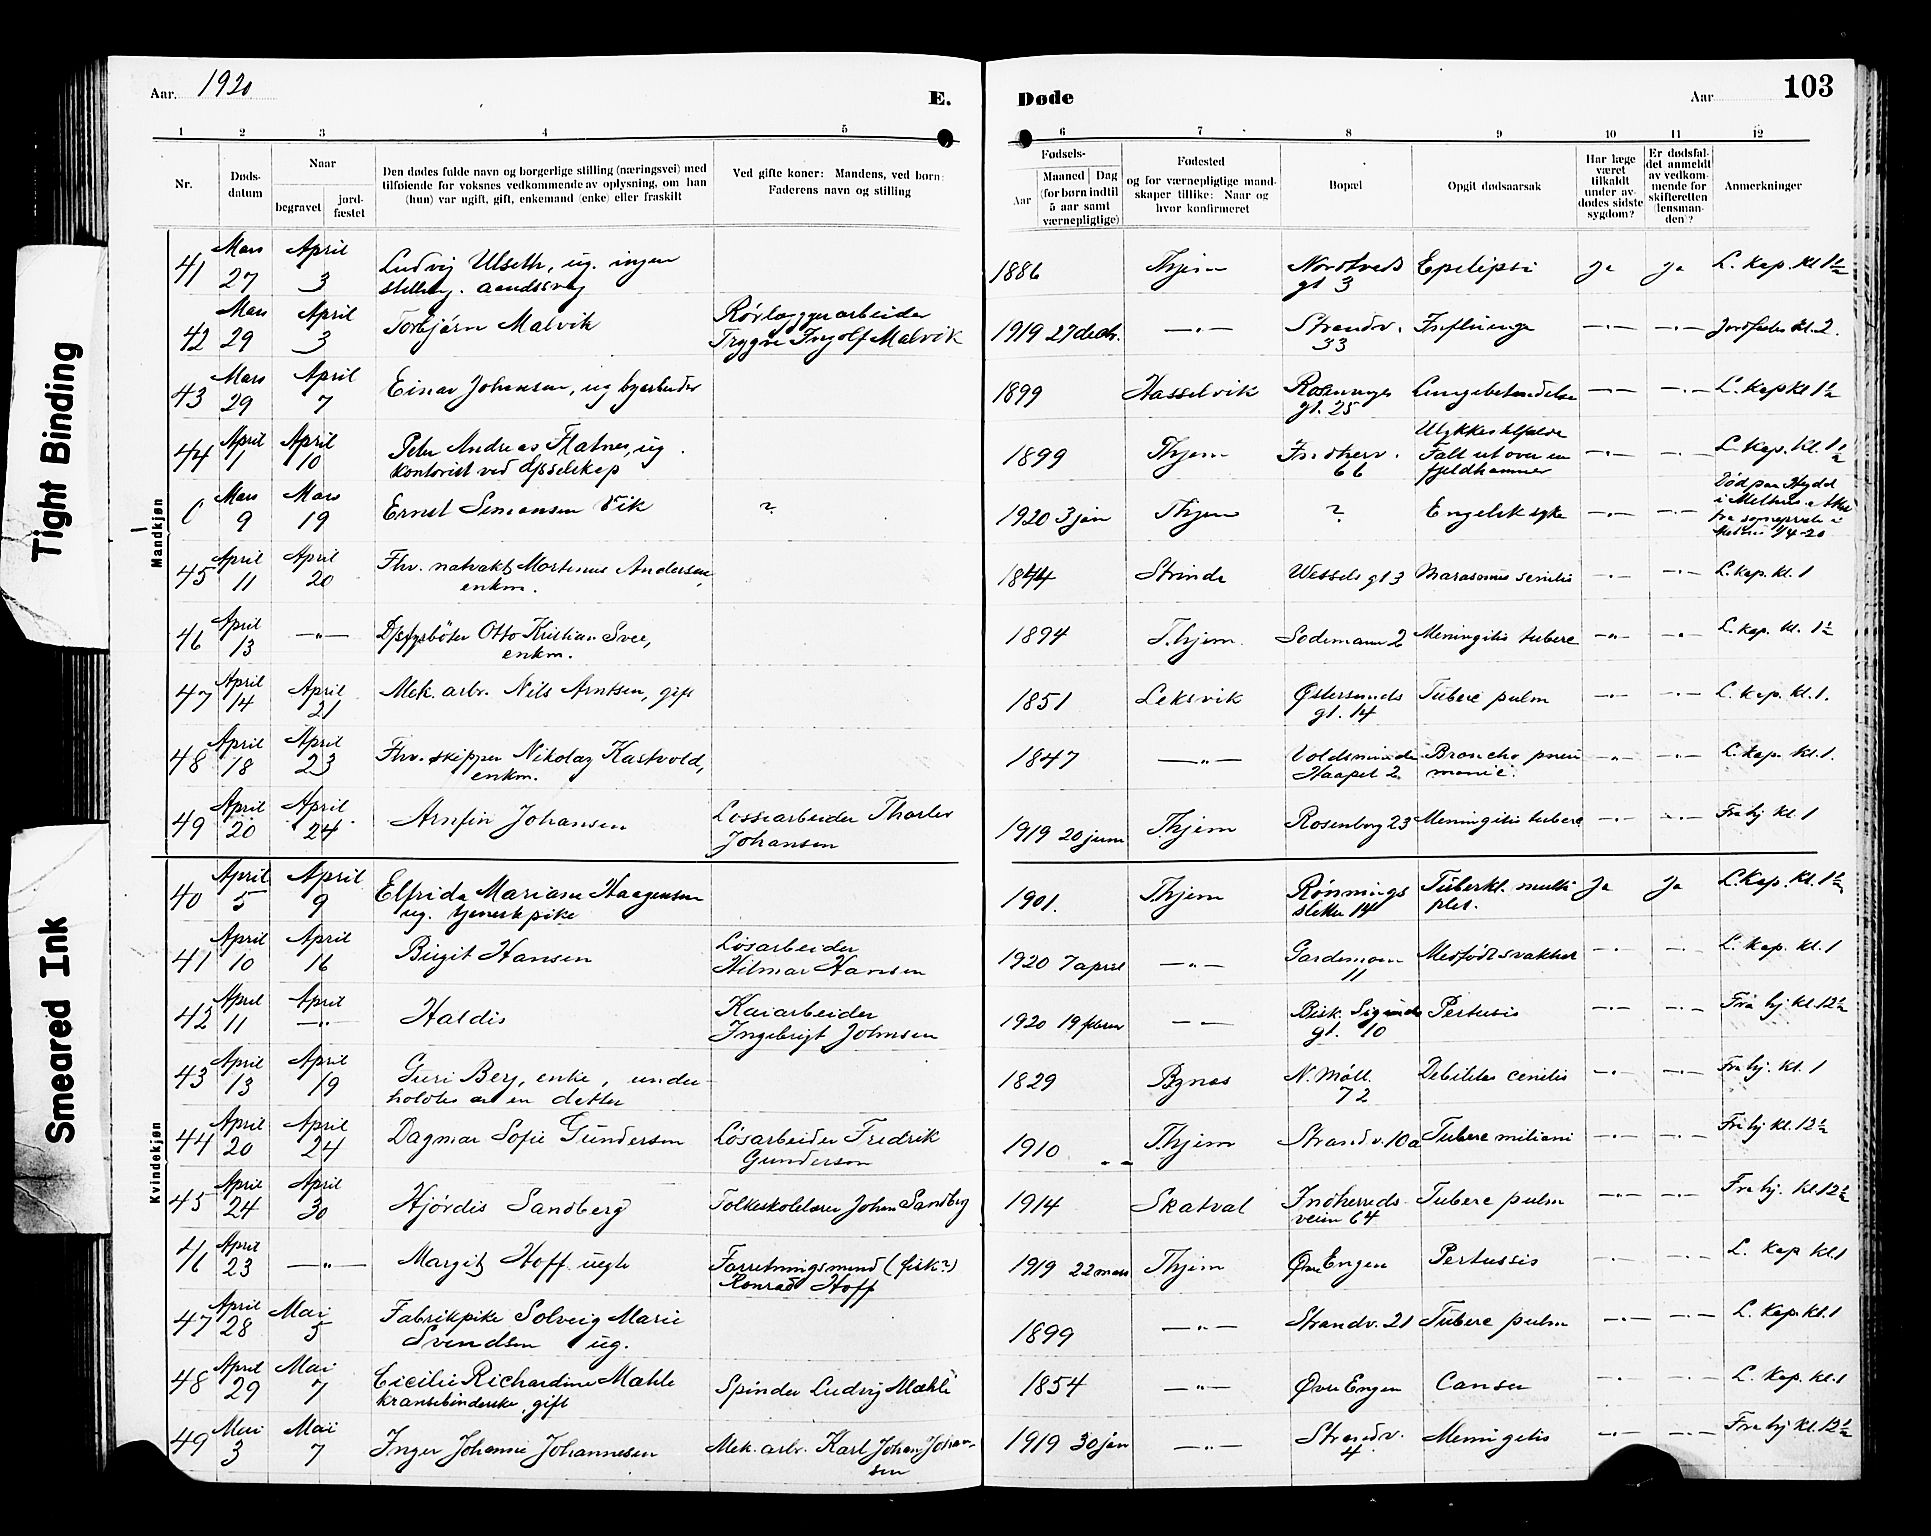 Aar. 1920
E.
Døde
Aar
103
1 2 3 4 5 6 7 8 9 10 11 12
Nr.
Døds-
datum
Naar
begravet
jord-
fæstet
Den dødes fulde navn og borgerlige stilling (næringsvei) med
tilføiende for voksnes vedkommende av oplysning, om han
(hun) var ugift, gift, enkemand (enke) eller fraskilt
Ved gifte koner: Mandens, ved børn:
Faderens navn og stilling
Fødsels-
Aar
Maaned Dag
(for børn indtil
5 aar samt
værnepligtige)
Fødested
og for værnepligtige mand-
skaper tillike: Naar og
hvor konfirmeret
Bopæl
Opgit dødsaarsak
Har læge
været
tilkaldt
under av-
dødes sidste
sygdom?
Er dødsfal-
det anmeldt
av vedkom-
mende for
skifteretten
(lensman-
den)?
Anmerkninger
Tight Binding
Smeared Ink
Mandkjøn
Kvindekjøn
41 Mars 27 April 3 Ludvig Ulseth, ug. ingen
stilling. aandssvag
1886 Thjem Nordtveds
gt 3 Epilepsi Ja Ja L. kap. kl 1½
42 Mars 29 April 3 Torbjörn Malvik Rörlæggerarbeider
Trygve Ingolf Malvik 1919 27 decbr. —"— Strandv.
33 Influenza —"— —"— Jordfæstes kl. 2.
43 Mars 29 April 7 Einar Johansen, ug byarbeider 1899 Hasselvik
gt. 25 Lungebetændelse —"— —"— L. kap kl 1½
44 April 1 April 10 Peter Andreas Flatnes, ug.
kontorist ved 1899 Thjem Indherv.
66 Ulykkestilfælde
Falt ut over en
fjeldhammer —"— —"— L. kap. kl. 1½
Mars 9 Mars 19 Ernst Simonsen Vik ? 1920 3 jan Thjem ? Engelsk syke —"— —"— Död paa
45 April 11 April 20 Fhv. natvakt Martinus Andersen,
enkm. Strinda Wessels gt 3 Marasmus senilis —"— —"— L. kap. kl. 1
46 April 13 —"— Otto Kristian Svee,
enkm. 1894 T.hjem Sodemann 2 Meningitis tuberc —"— —"— L. kap. kl. 1½
47 April 14 April 21 Mek. arb. Nils Arntsen, gift 1851 Leksvik Østersunds
gt. 14 Tuberc pulm —"— —"— L. kap. kl. 1.
48 April 18 April 23 Fhv. skipper Nikolay Kastvold,
enkm. 1847 —"— Voldsminde
Broncho pneu
monie. —"— —"— L. kap. kl. 1.
49 April 20 April 24 Arnfin Johansen Lossearbeider Tharlev
Johansen 1919 20 juni Thjem Rosenborg 23 Meningitis tuberc. —"— —"— Fra hj kl. 1
40 April 5 April 9 Elfrida Mariane Haagensen
ug. tjenestepike 1901. Thjem Rönnings
sletten 14 Tuberkl. multi
plex. Ja Ja L. Kap. kl. 1½
41 April 10 April 16 Birgit Hansen Lösarbeider
Hilmar Hansen 1920 7 april —"— Gardemoen
11 Medfödt svakhet —"— —"— L. kap. kl. 1
42 April 11 April —"— Haldis Kaiarbeider
Ingebrigt Johnsen 1920 19 februar —"— Bisk. Sigurds
gt. 10 Pertusis —"— —"— Fra hj kl. 12½
43 April 13 April 19 Guri Berg, enke, under-
holdes av en datter 1829 Bynes N. Möll.
72 Debilitas cenilis —"— —"— Fra hj. kl. 1
44 April 20 April 24 Dagmar Sofie Gundersen Lösarbeider Fredrik
Gundersen 1910 Thjem Strandv. 10a Tuberc miliani —"— —"— Fra hj kl. 12½
45 April 24 April 30 Hjördis Sandberg Folkeskolelærer Johan Sandberg 1914 Skatval Indherreds-
veien 64 Tuberc pulm —"— —"— Fra hj. kl. 12½
46 April 23 —"— Margit Hoff uegte Forretningsmand (fisk?)
Konrad Hoff 1919 22 mars Thjem Øvre Engen Pertussis —"— —"— L. kap kl. 1
47 April 28 Mai 5 Fabrikpike Solveig Marie
Svendsen ug. 1899 —"— Strandv. 21 Tuberc pulm —"— —"— L. kap. kl. 1
48 April 29 Mai 7 Cicilie Richardine Mæhle
kransebinderske, gift Spinder Ludvig Mæhle 1854 —"— Øvre Engen Cancer —"— —"— L. kap. kl. 1
49 Mai 3 Mai 7 Inger Johanne Johannesen Mek. arb. Karl Johan Johan-
sen 1919 30 jan —"— Strandv.
4 Meningitis —"— —"— Fra hj kl. 12½